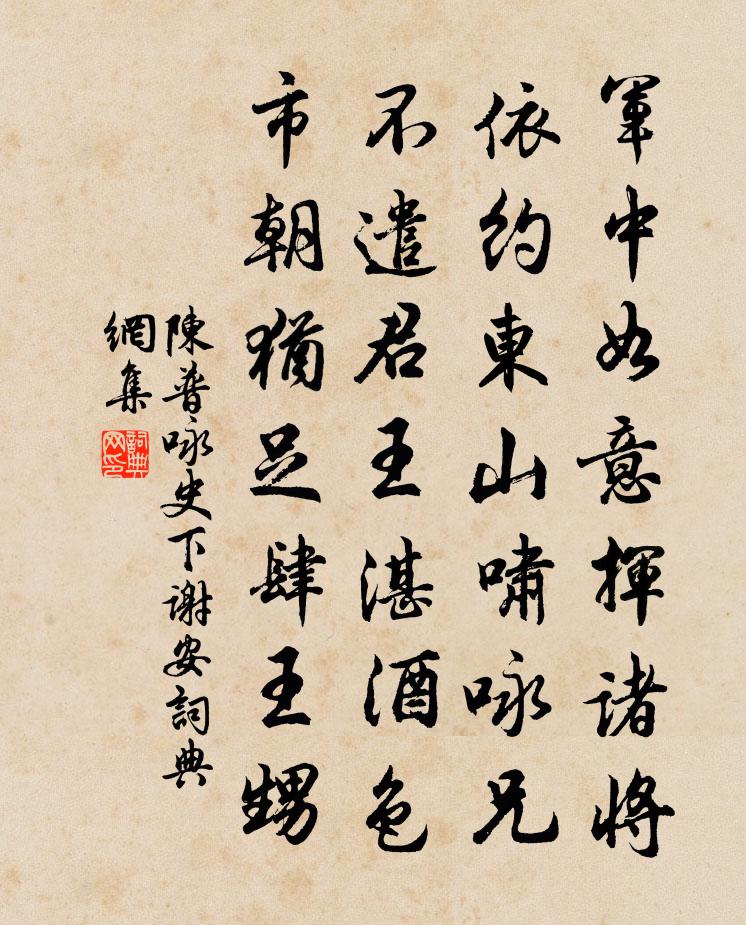 軍中如意揮諸將
依約東山嘯咏兄
不遣君王湛酒色
市朝猶足肆王甥
陳普咏史下謝安詞典
網集
詞典
网印